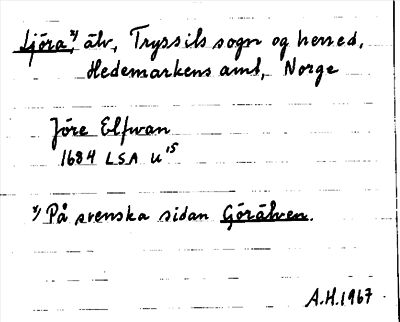 Ljöra x/, älv, Tryssils sogn og herred,
Hedemarkens amt, Norge
Jöre Elfwan
1684 LSA U 15
x/ På svenska sidan Görälven.
A.H. 1967